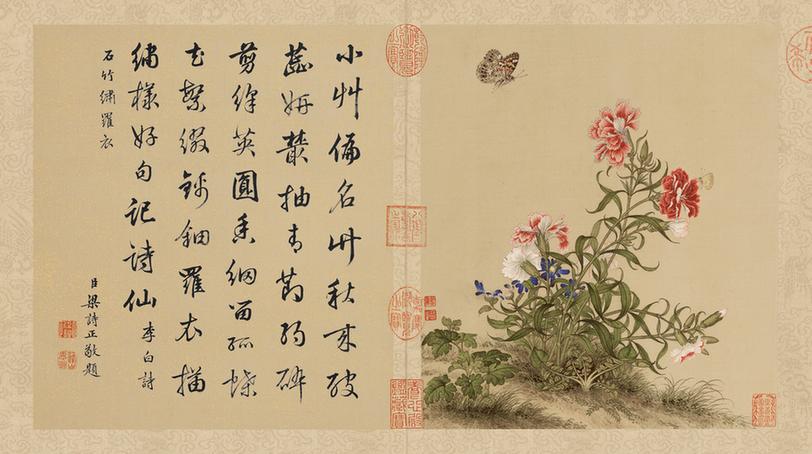 小艸偏名竹秋來破
蕊妍叢抽青節弱碎
剪絳英圓香細留孤蝶
花繁綴錢鈿羅衣描
繡樣好句記詩仙 李白詩
石竹繡羅衣
臣梁詩正敬題